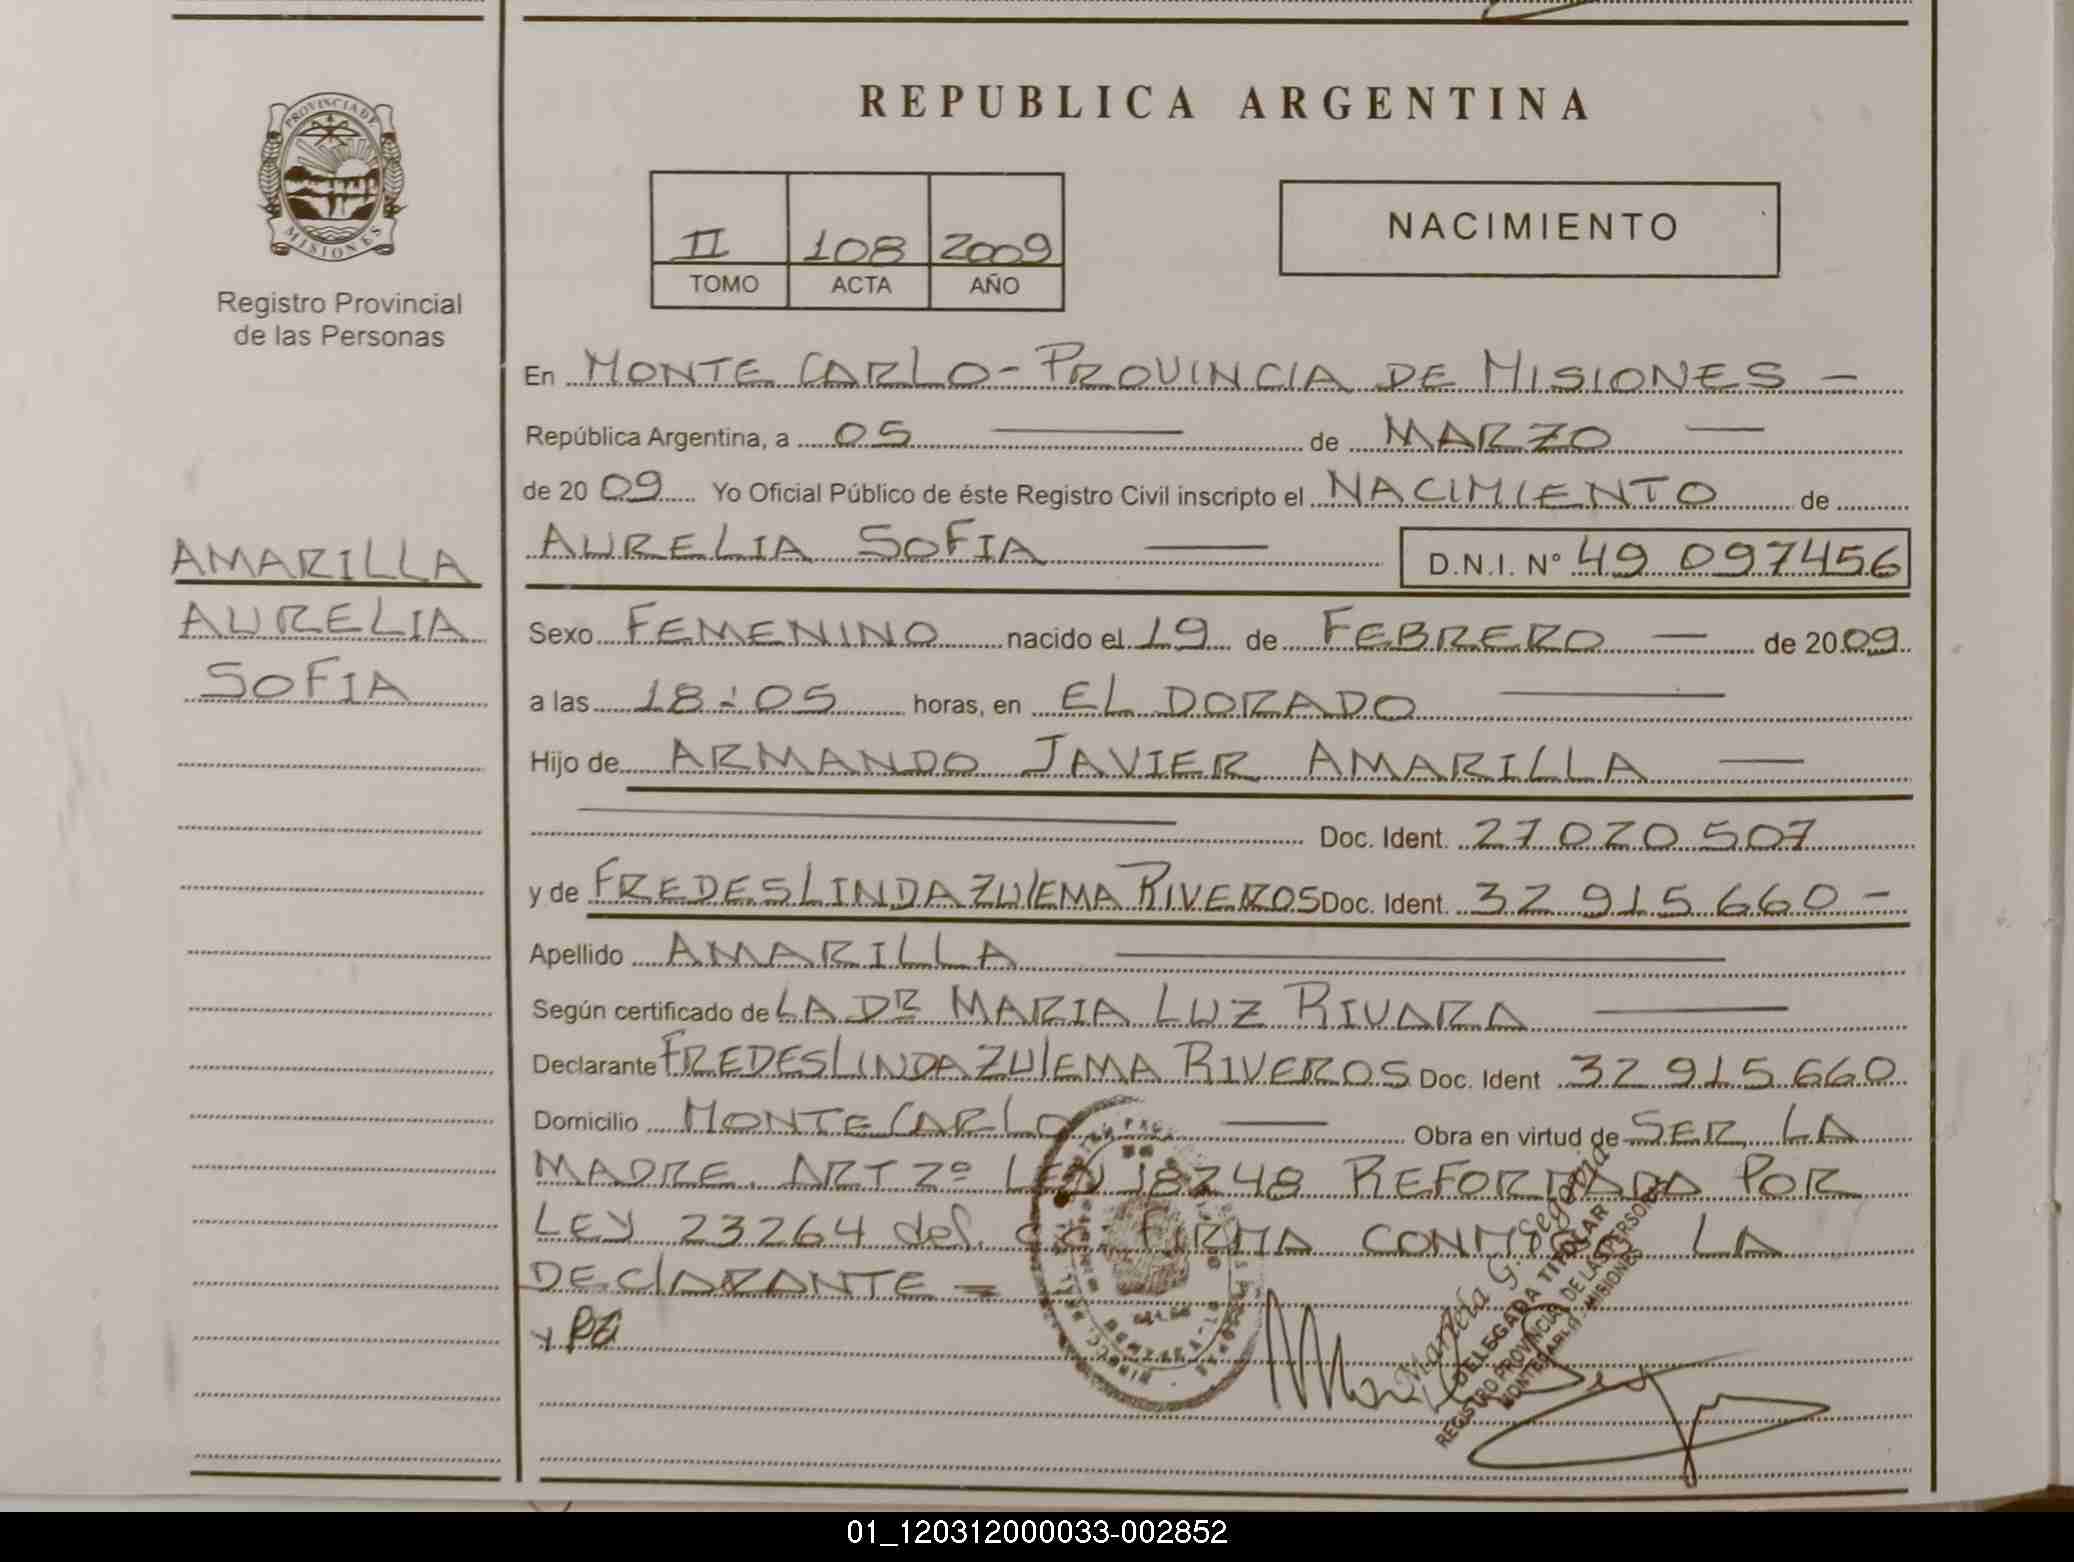 REPUBLICA ARGENTINA
PROVINCIA DE MISIONES
Registro Provincial
de las Personas
II 108 2009
TOMO ACTA AÑO
NACIMIENTO
En MONTE CARLO - PROVINCIA DE MISIONES -
República Argentina, a 05 de MARZO
de 20 09 Yo Oficial Público de éste Registro Civil inscripto el NACIMIENTO de
AURELIA SOFIA D.N.I. N° 49 097456
AMARILLA
AURELIA
SOFIA
Sexo FEMENINO nacido el 19 de FEBRERO de 2009
a las 18:05 horas, en EL DORADO
Hijo de ARMANDO JAVIER AMARILLA
Doc. Ident. 27 020 507
y de FREDESLINDA ZULEMA RIVEROS Doc. Ident. 32 915 660 -
Apellido AMARILLA
Según certificado de LA DR MARIA LUZ RIVARA
Declarante FREDESLINDA ZULEMA RIVEROS Doc. Ident 32 915 660
Domicilio MONTE CARLO Obra en virtud de SER LA
MADRE. ART 2º LEY 18248 REFORMADA POR
LEY 23264 del C.C. FIRMA CONMIGO LA
DECLARANTE =
Marcela G. Segovia
DELEGADA TITULAR
REGISTRO PROVINCIAL DE LAS PERSONAS
MONTECARLO - MISIONES
01_120312000033-002852